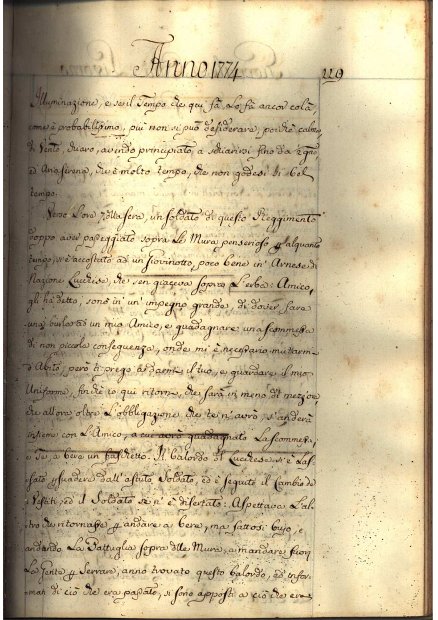 Anno 1774
119
Illuminazione, e se il Tempo che qui fà, lo fà ancor colà
come è probabilissimo, più non si può desiderare, poichè calma
di Vento, chiaro, avendo principiato a schiarirsi fino da
ed è molto tempo, che non godesi di bel
tempo.
Verso l'ore della sera, un soldato di questo Reggimento
doppo aver passeggiato sopra le Mura pensieroso p alquanto
tempo, s'è accostato ad un Giovinotto, poco bene in Arnese di
Nazione Lucchese, che sen giaceva sopra l'erba: Amico,
gli hà detto, sono in un impegno grande, di dover fare
una burla ad un mio Amico, e guadagnare una scommessa
di non piccola conseguenza, onde mi è necessario mutarmi
d'Abito; però ti prego di darmi il tuo, e guardare il mio
Uniforme, finchè io quì ritorni, che sarà in meno di mezz'ora
che allora oltre l'obbligazione che te n'avrò, s'anderà
insieme con l'Amico, a cui avrò guadagnato la scommessa
e te, a bere un fiaschetto. Il balordo di Lucchese si è las-
sato p suadere dall'astuto Soldato, ed è seguito il Cambio de
Vestiti, ed il Soldato se n'è disertato: Aspettava l'al-
tro che ritornasse p andare a bere, ma fattosi bujo, e
andando la Pattuglia sopra dlle Mura, a mandare fuori
la Gente p serrare, anno trovato questo balordo, ed infor-
mati di ciò che era passato, si sono apposti a ciò che era